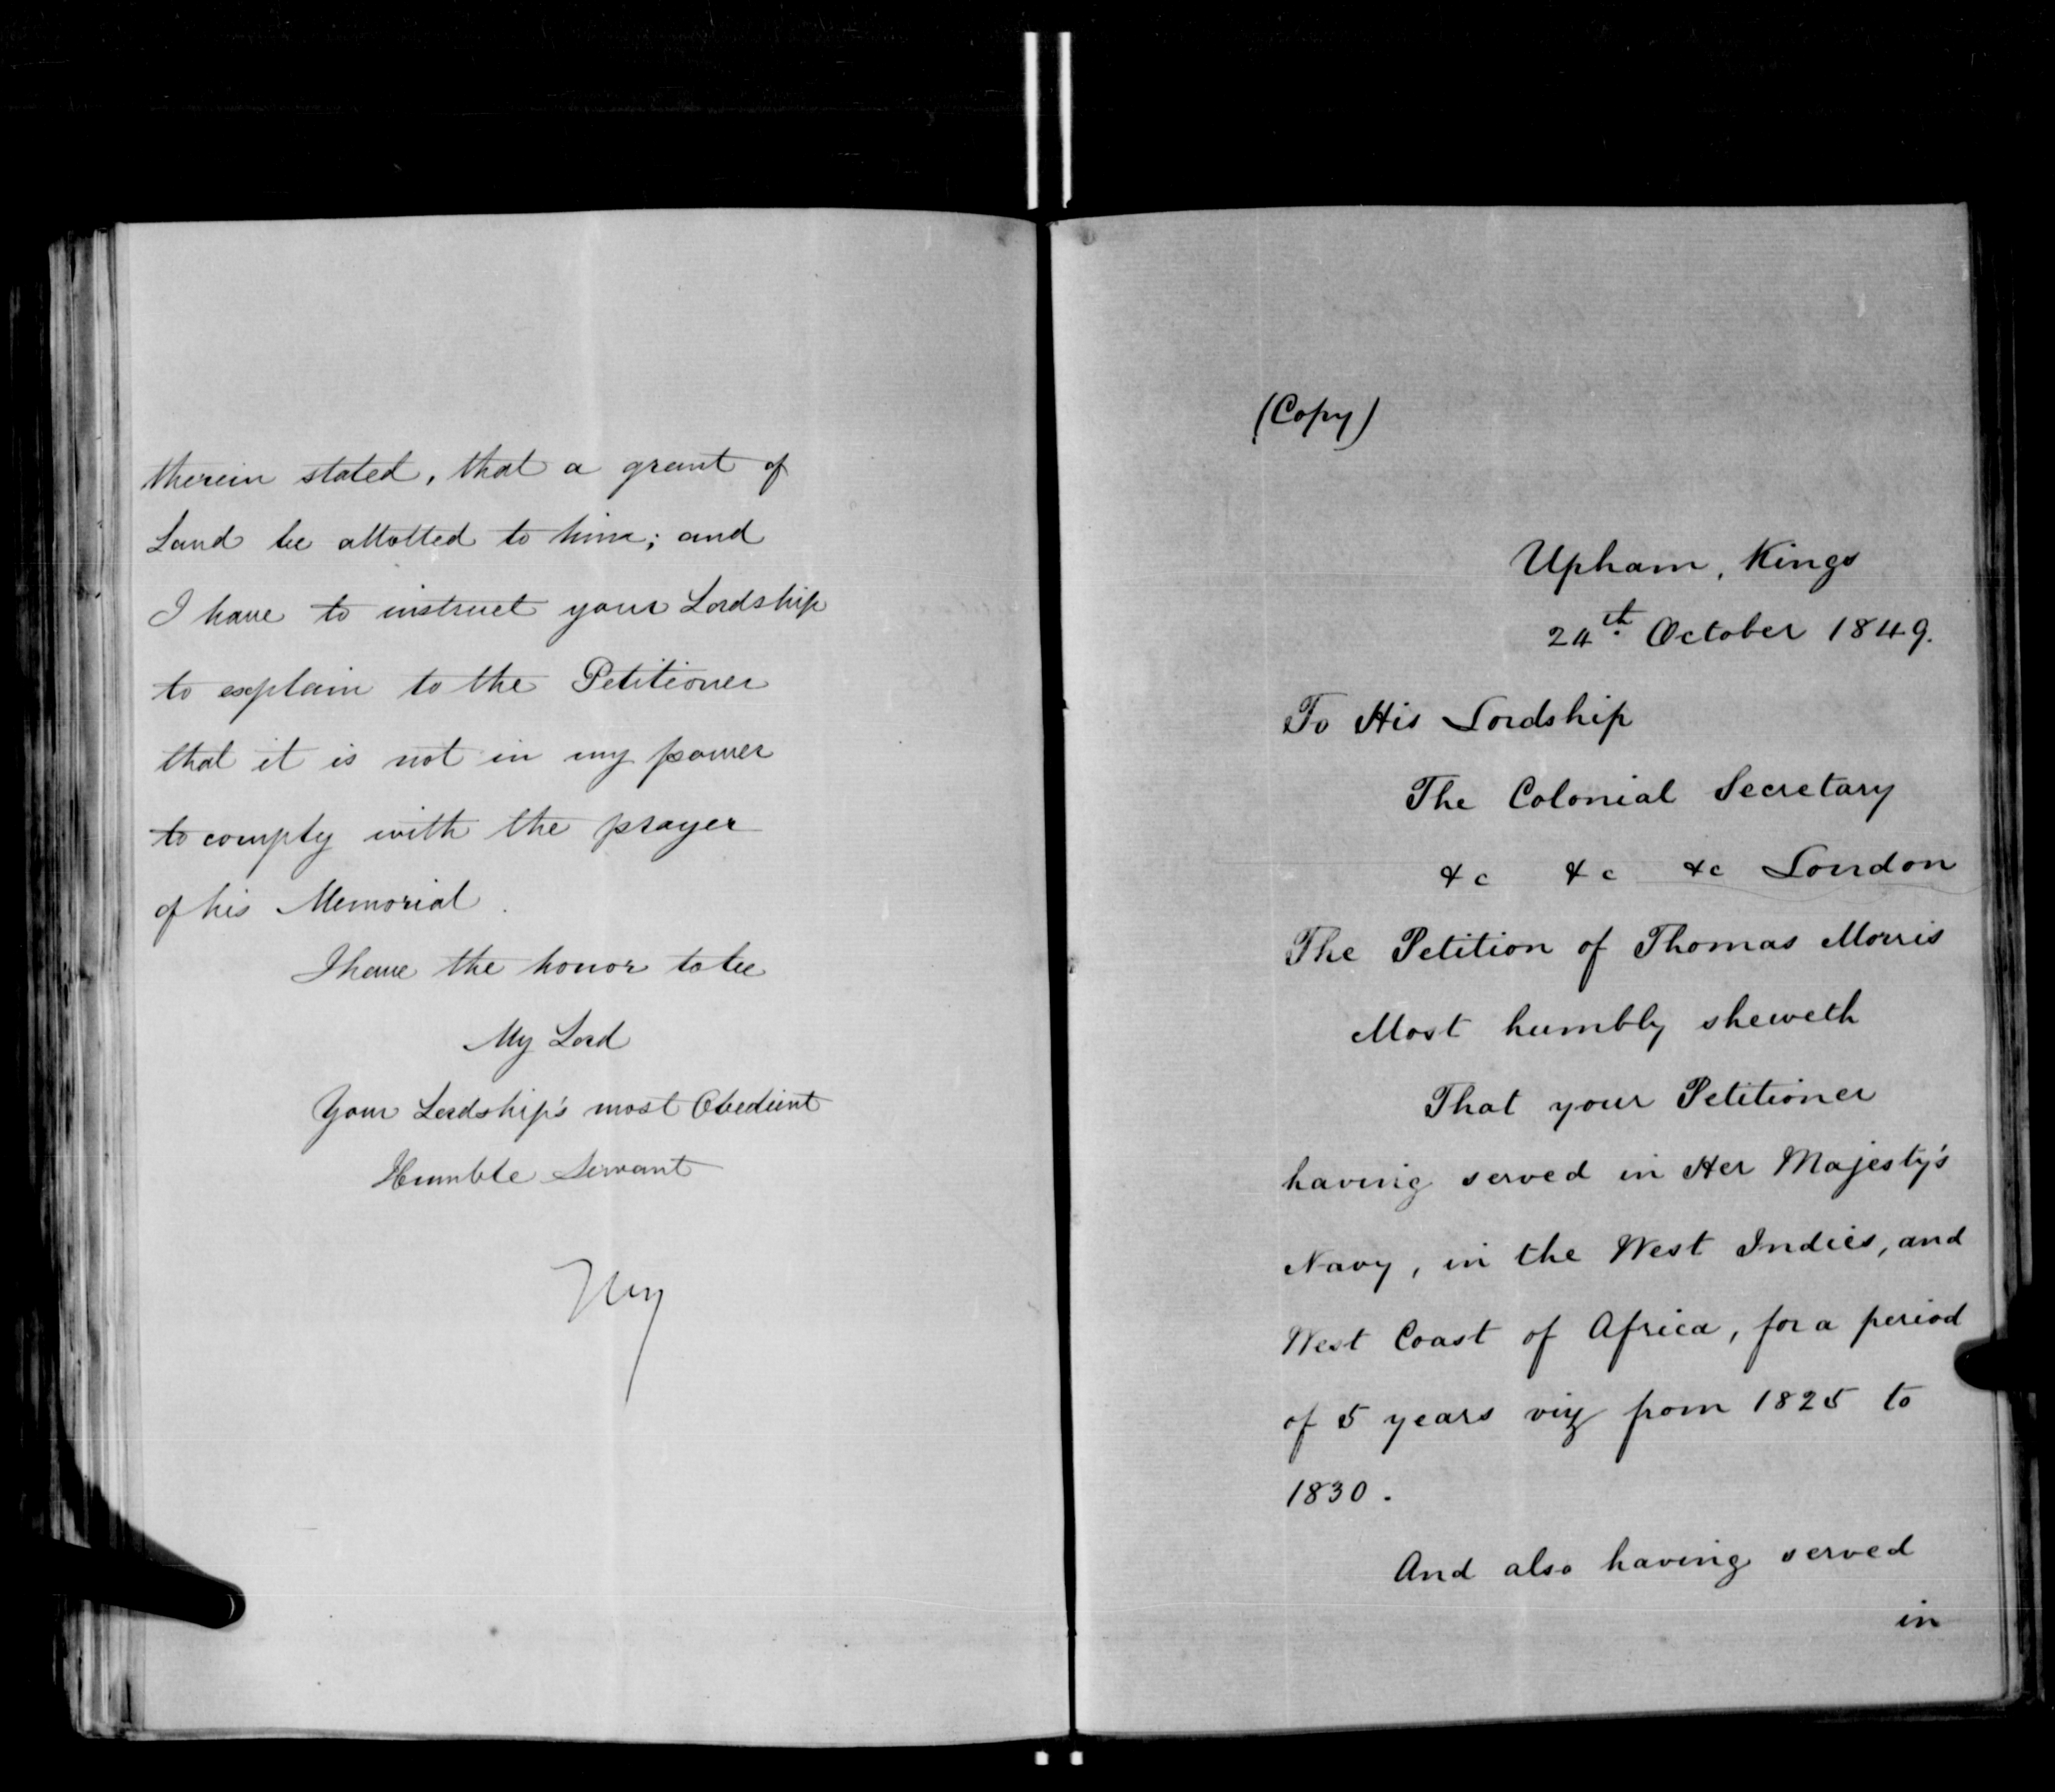 therein stated, that a grant of
Land be allotted to him; and
I have to instruct your Lordship
to explain to the Petitioner
that it is not in my power
to comply with the prayer
of his Memorial.
I have the honor to be
My Lord
Your Lordship's most Obedient
Humble Servant
(Copy)
Upham, Kings
24th October 1849.
To His Lordship
The Colonial Secretary
&c &c &c London
The Petition of Thomas Morris
Most humbly sheweth
That your Petitioner
having served in Her Majesty's
Navy, in the West Indies, and
West Coast of Africa, for a period
of 5 years viz from 1825 to
1830.
And also having served
in